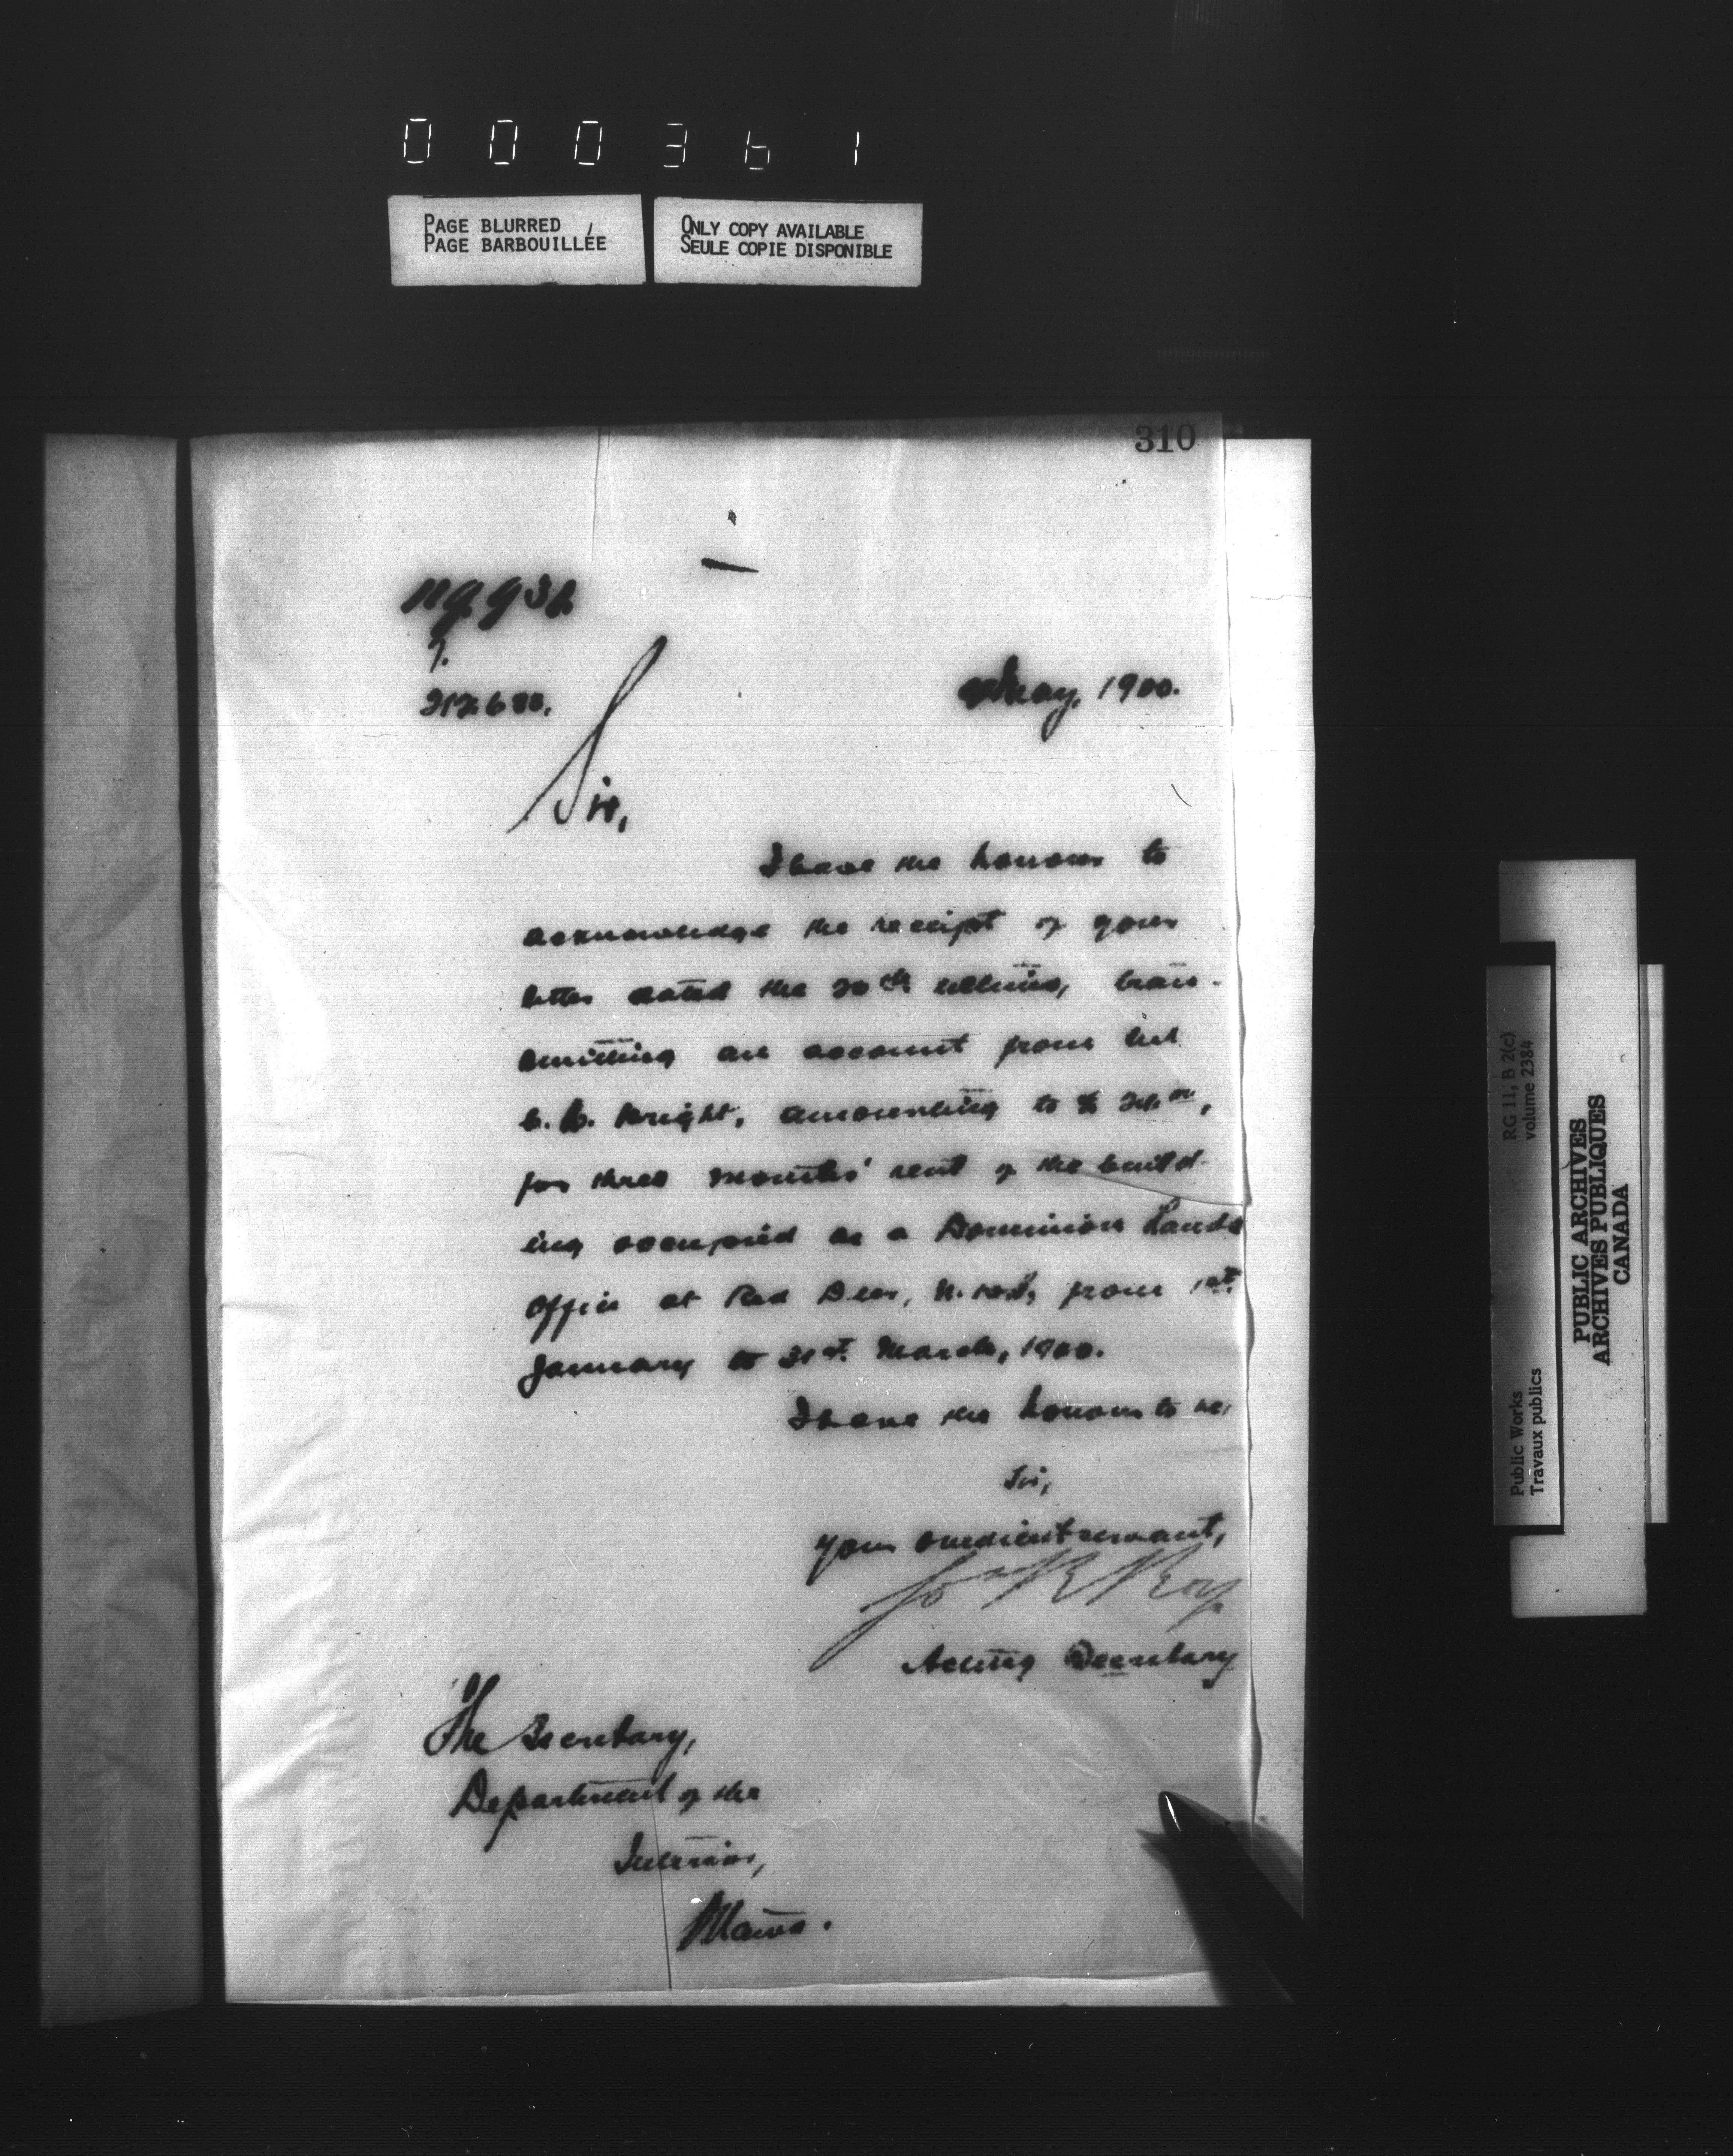 000361
PAGE BLURRED
PAGE BARBOUILLÉE
ONLY COPY AVAILABLE
SEULE COPIE DISPONIBLE
310
May, 1900.
Sir,
I have the honour to
acknowledge the receipt of your
letter dated the 30th ultimo, trans-
mitting an account from
Wright, amounting to $
for three months' rent of the build-
ing occupied as a Dominion Lands
Office at Red Deer, N.W.T., from 1st
January to 31st March, 1900.
I have the honour to be,
Sir,
Your obedient servant,
Jos R Roy
Acting Secretary
The Secretary,
Department of the
Interior,
Ottawa.
RG 11, B 2(c)
volume 2384
Public Works
Travaux publics
PUBLIC ARCHIVES
ARCHIVES PUBLIQUES
CANADA